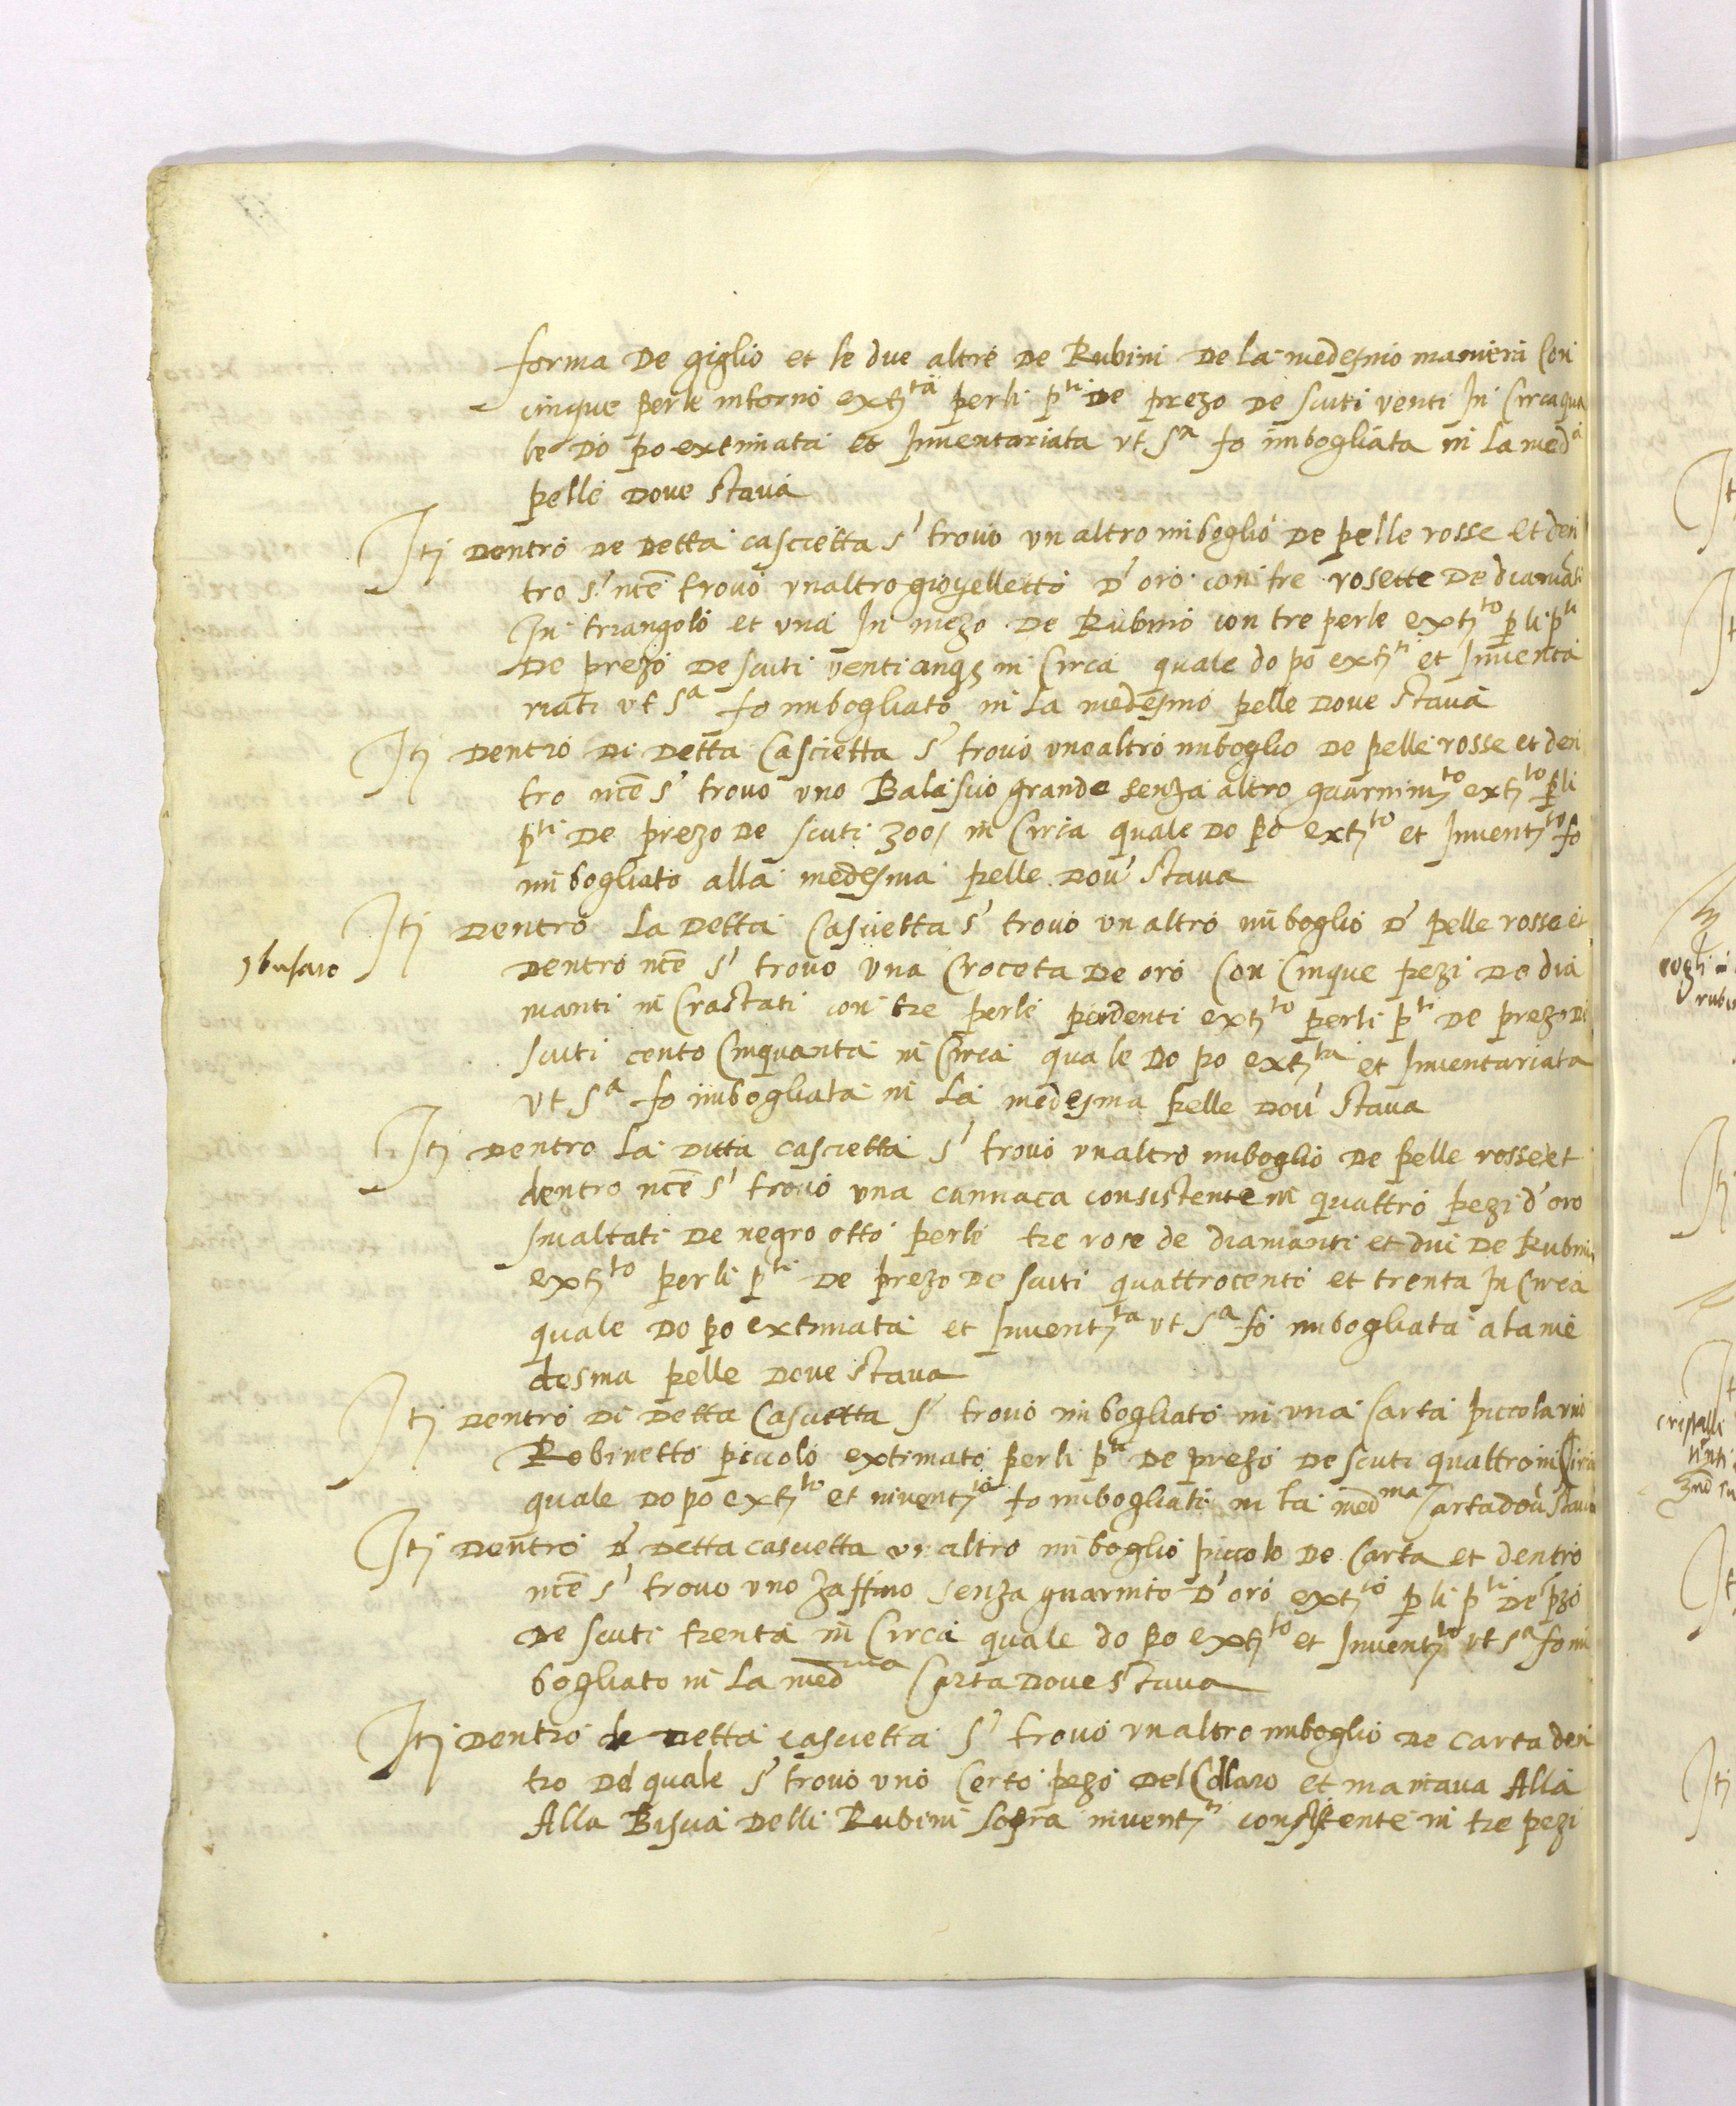 forma de giglio et le due altre de Rubini de la medesmo manierà Con
cinque perle intorno ext^ta perli p^ti de prezo de scuti venti In Circa qua
le do po extimata et Inventariata ut s^a fo imbogliata in la med^a
pelle dove stava
Itj dentro de detta cascietta s' trovo un altro imboglio de pelle rosse et den
tro s' nce trovo unaltro gioyelletto d'oro con tre rosette de diamāti
In triangolo et una In mezo de Rubino con tre perle ext^to p li p^ti
de prezo de scuti venticinq3 in Circa quale do po ext^ti et Inventa
riati ut s^a fo imbogliato in la medesmo pelle dove stava
Itj dentro di detta Cascietta s' trovo uno altro imboglio de pelle rosse et den
tro nce s' trovo uno Balascio grande senza altro guarnim^to ext^to p li
p^ti de prezo de scuti 300/ in Circa quale do po ext^to et Invent^to fo
imbogliato alla medesma pelle dov' stava
Itj dentro la detta Cascietta s' trovo un altro imboglio d' pelle rosse et
dentro nce s' trovo una Croceta de oro Con Cinque pezi de dia
manti in Crastati con tre perle pendenti ext^to perli p^ti de prezo di
scuti cento Cinquanta in Circa quale do po ext^ta et Inventariata
ut s^a fo imbogliata in la medesma pelle dov' stava
Itj dentro la ditta cascietta s' trovo unaltro imboglio de pelle rosse et
dentro nce s' trovo una cannaca consistente in quattro pezi d'oro
smaltati de negro otto perle tre rose de diamanti et dui de Rubini
ext^to perli p^ti de prezo de scuti quattrocento et trenta In Circa
quale do po extimata et Invent^ta ut s^a fo imbogliata a la me
desma pelle dove stava
Itj dentro di detta Cascietta s' trovo imbogliato in una Carta piccola uno
Robinetto piccolo extimato perli p^ti de prezo de scuti quattro in Circa
quale do po ext^to et invent^ta fo imbogliati in la med^ma Carta dov' stava
Itj dentro d' detta cascietta un altro imboglio piccolo de Carta et dentro
nce s' trovo uno zaffino senza guarnito d'oro ext^to p li p^ti de pzo
de scuti trenta in Circa quale do po ext^to et Invent^to ut s^a fo im
bogliato in la med^ma Carta dove stava
Itj dentro de detta cascietta s' trovo unaltro imboglio de carta den
tro del quale s' trovo uno Certo pezo del Collaro et mancava Alla
Alla Biscia delli Rubini sopra invent^ti consistente in tre pezi